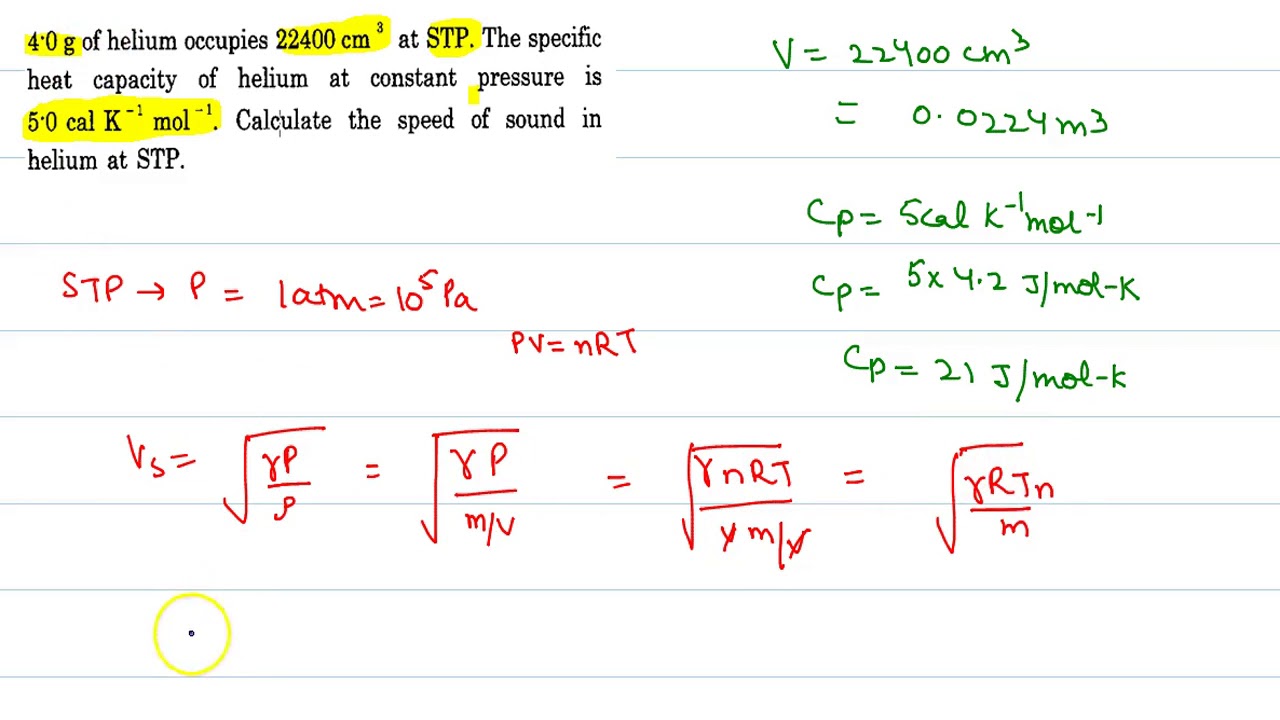 4·0 g of helium occupies 22400 cm³ at STP. The specific
heat capacity of helium at constant pressure is
5·0 cal K⁻¹ mol⁻¹. Calculate the speed of sound in
helium at STP.
V = 22400 cm³
= 0.0224 m3
Cp = 5 cal K⁻¹ mol⁻¹
Cp = 5 x 4.2 J/mol-K
Cp = 21 J/mol-K
STP → P = 1atm = 10⁵ Pa
PV = nRT
Vs = √(γP/ρ) = √(γP/(m/V)) = √(γnRT/(V m/V)) = √(γRTn/m)